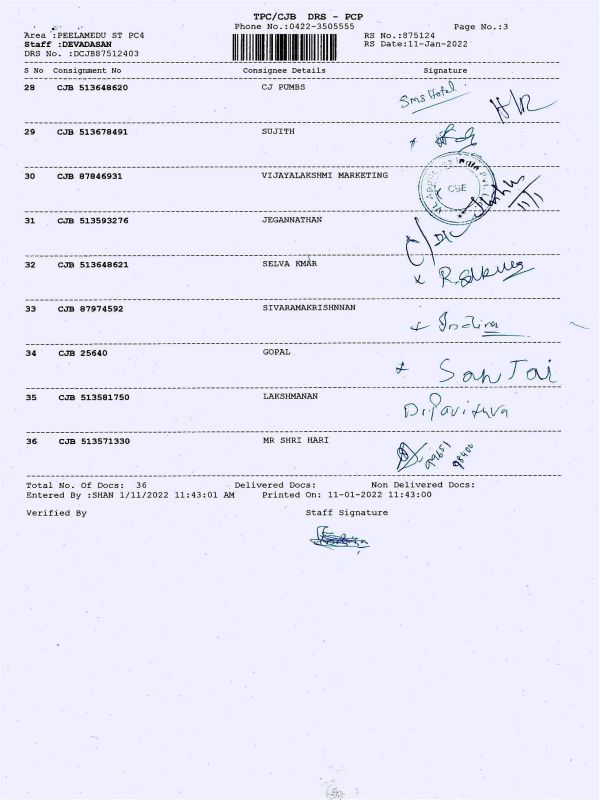 TPC/CJB DRS - PCP
Phone No.:0422-3505555 Page No.:3
Area :PEELAMEDU ST PC4 RS No.:875124
Staff :DEVADASAN RS Date:11-Jan-2022
DRS No. :DCJB87512403
S No Consignment No Consignee Details Signature
28 CJB 513648620 CJ PUMBS
Sms Hotel
29 CJB 513678491 SUJITH
30 CJB 87846931 VIJAYALAKSHMI MARKETING
CBE
11/1
31 CJB 513593276 JEGANNATHAN
32 CJB 513648621 SELVA KMAR
33 CJB 87974592 SIVARAMAKRISHNNAN
Indira
34 CJB 25640 GOPAL
35 CJB 513581750 LAKSHMANAN
36 CJB 513571330 MR SHRI HARI
Total No. Of Docs: 36 Delivered Docs: Non Delivered Docs:
Entered By :SHAN 1/11/2022 11:43:01 AM Printed On: 11-01-2022 11:43:00
Verified By Staff Signature